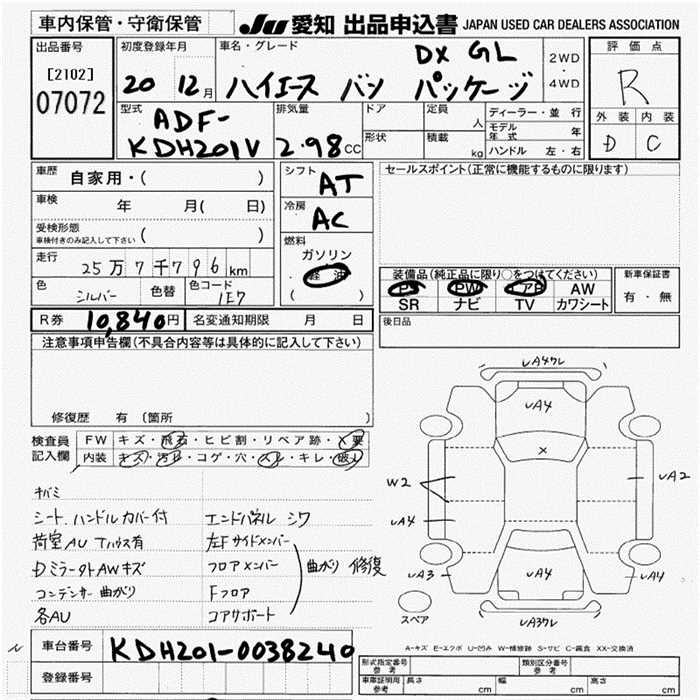 車内保管・守衛保管 JU 愛知 出品申込書 JAPAN USED CAR DEALERS ASSOCIATION
出品番号 初度登録年月 車名・グレード DX GL 2WD・4WD 評価点
[2102] 07072 20 12月 ハイエース バン パッケージ R
型式 ADF-KDH201V 排気量 2.98CC ドア 定員 人 ディーラー・並行 外装 内装
形状 積載 kg モデル年式 年 D C
ハンドル 左・右
車歴 自家用・( ) シフト AT セールスポイント(正常に機能するものに限ります)
車検 年 月( 日) 冷房 AC
受検形態 車検付きのみ記入して下さい ( )
燃料 ガソリン 軽油 ( )
走行 25万7千796km
色 シルバー 色替 色コード 1E7
装備品(純正品に限り○をつけてください) 新車保証書
PS PW エアB AW 有・無
SR ナビ TV カワシート
R券 10,840円 名変通知期限 月 日 後日品
注意事項申告欄(不具合内容等は具体的に記入して下さい)
修復歴 有 (箇所
検査員記入欄 FW キズ・飛石・ヒビ割・リペア跡・X要
内装 キズ・汚レ・コゲ・穴・スレ・キレ・破レ
キバミ
シート、ハンドルカバー付 エンドパネル シワ
荷室AU Tハウス有 左Fサイドメンバー
Dミラー外AWキズ フロアメンバー 曲がり 修復
コンデンサー曲がり Fフロア
各AU コアサポート
UA4ワレ
UA4
X
W2
UA2
UA4
UA3
UA4
UA4
スペア
UA3ワレ
A-キズ E-エクボ U-凹み W-補修跡 S-サビ C-腐食 XX-交換済
N 車台番号 KDH201-0038240
登録番号
形式指定番号 参考 類別区分番号 参考
車庫証明用 参考 長さ cm 幅 cm 高さ cm